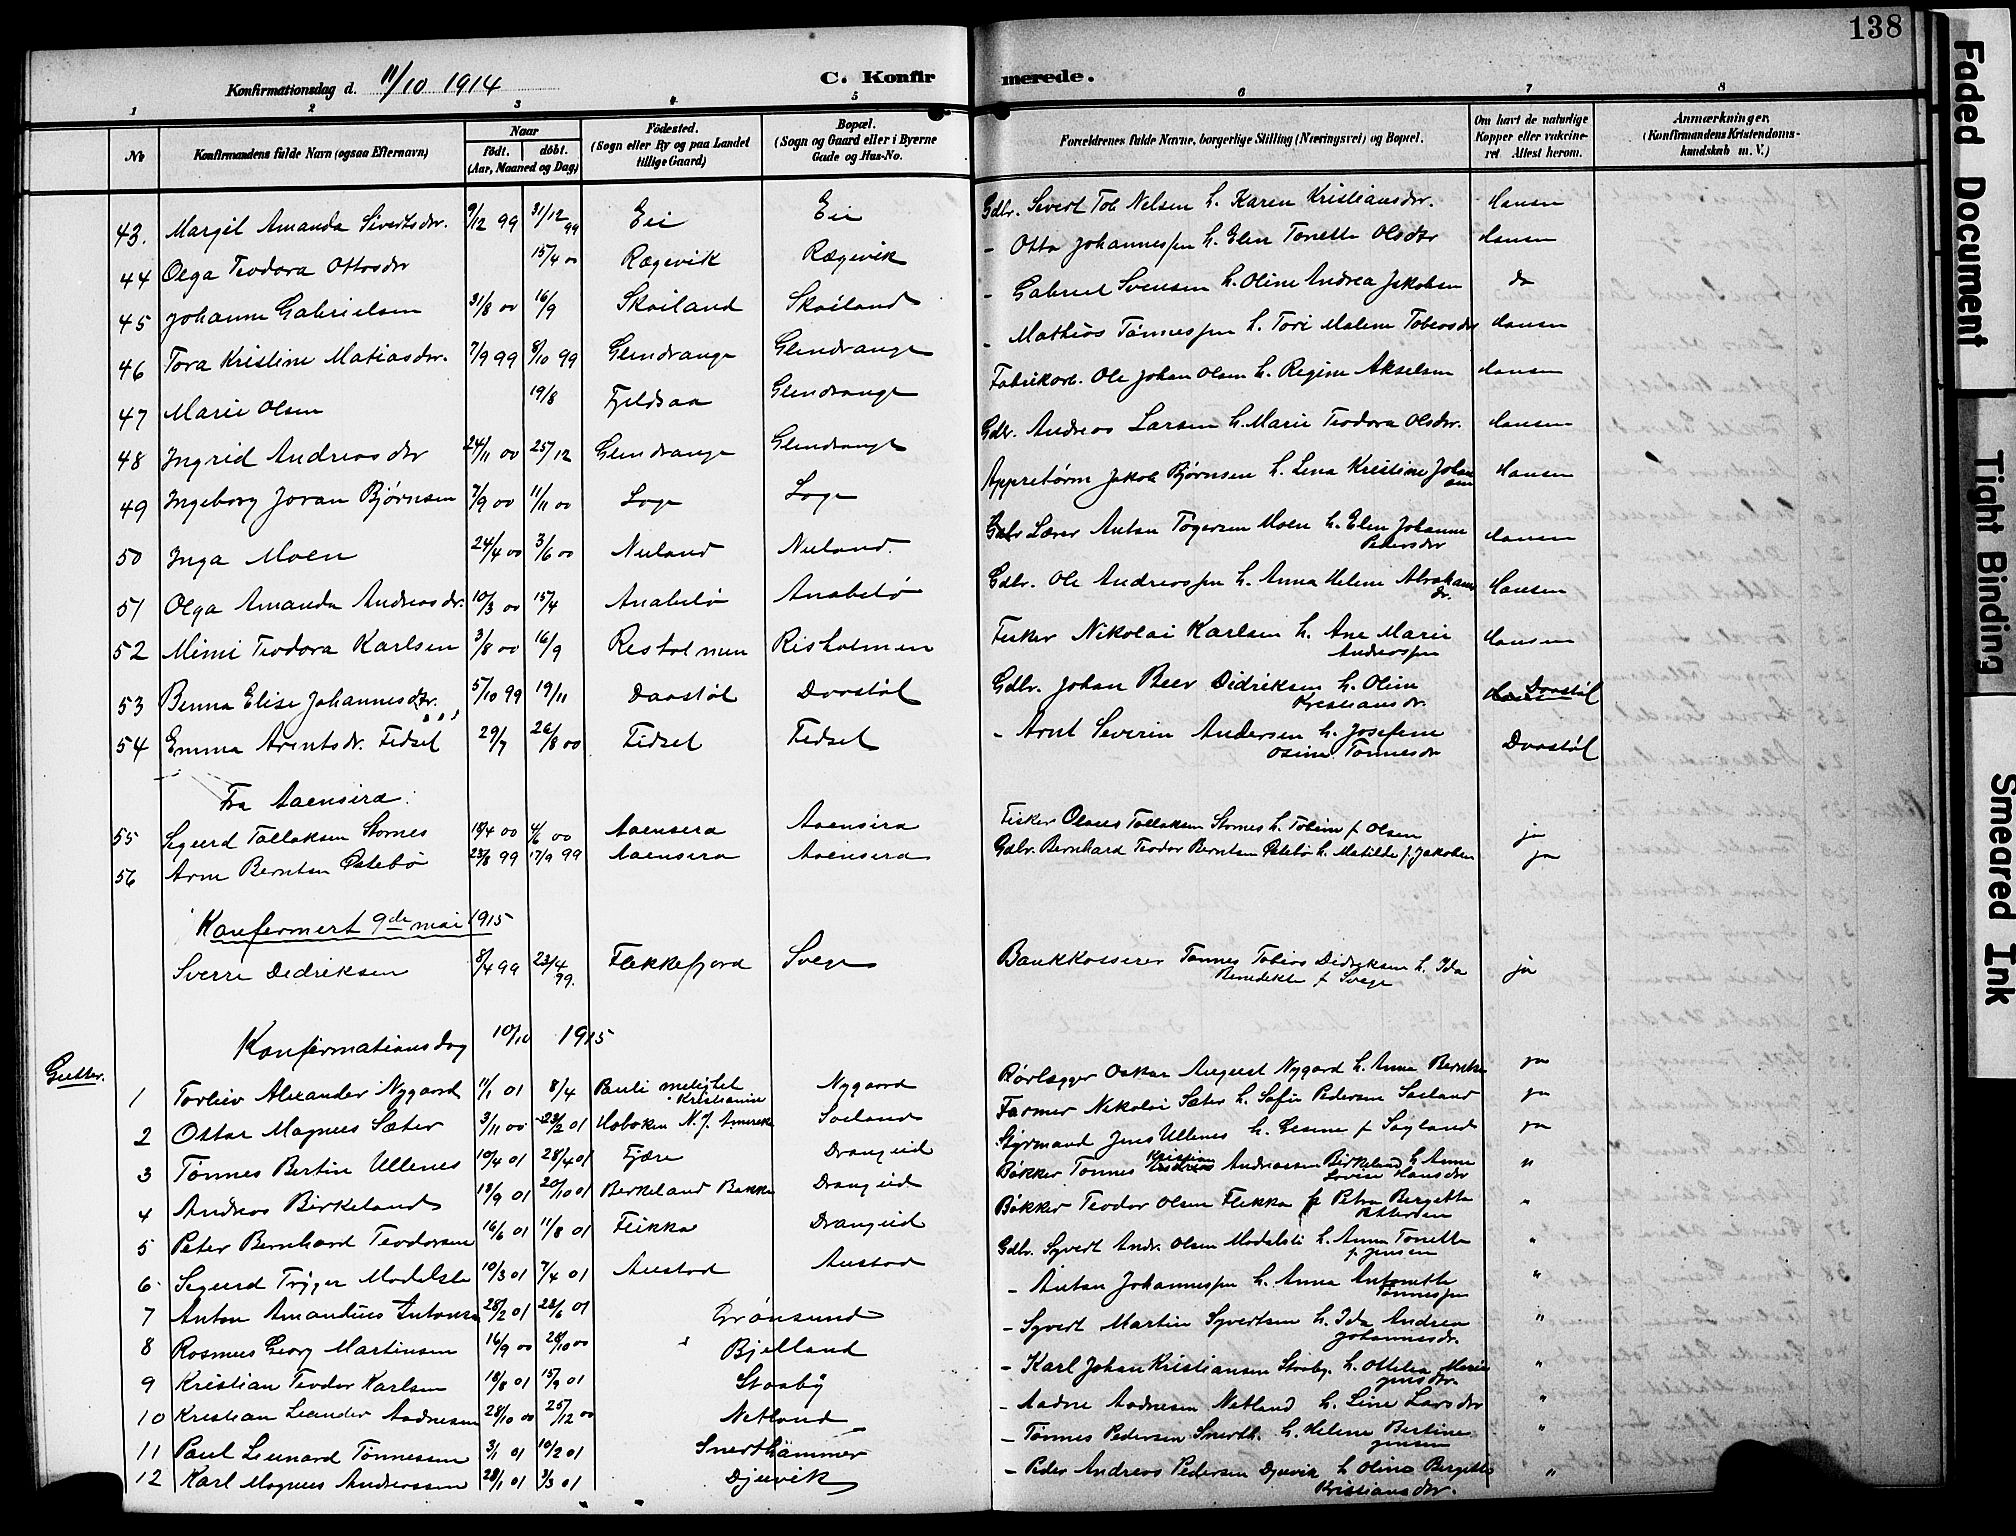 138
Konfirmationsdag d. 11/10 1914 C. Konfirmerede.
1 2 3 4 5 6 7 8
No Konfirmandens fulde Navn (ogsaa Efternavn) Naar født. døbt. (Aar, Maaned og Dag) Fødested. (Sogn eller By og paa Landet tillige Gaard) Bopæl. (Sogn og Gaard eller i Byerne Gade og Hus-No. Forældrenes fulde Navne, borgerlige Stilling (Næringsvei) og Bopæl. Om havt de naturlige Kopper eller vakcineret Attest herom. Anmærkninger, (Konfirmandens Kristendomskundskab m. V.)
43. Margit Amanda Sivertsdr. 9/12 99 31/12 99 Eie Eie Gdbr. Sivert Tob Nelsen h. Karen Kristiansdr. Hansen
44 Olga Teodora Ottosdr 15/4 00 Rægevik Rægevik - Otto Johannessen h. Elen Tonette Olsdtr Hansen
45 Johanne Gabrielsen 31/8 00 16/9 Skailand Skailand - Gabriel Svensen h. Oline Andrea Jakobsen do
46 Tora Kristine Matiasdr. 7/9 99 8/10 99 Glendrange Glendrange - Mathias Tønnessen h. Tori Malene Tobiasdr Hansen
47 Marie Olsen 19/8 Fjeldsaa Glendrange Fabrikarb. Ole Johan Olsen h. Regine Akselsen Hansen
48 Ingrid Andreasdr 24/11 00 25/12 Glendrange Glendrange Gdbr. Andreas Larsen h. Marie Teodora Olsdr. Hansen
49 Ingeborg Joran Bjørnsen 7/9 00 11/11 00 Loge Loge Appretørm Jakob Bjørnsen h. Lena Kristine Johansen Hansen
50 Inga Moen 24/4 00 3/6 00 Nuland Nuland. Gdbr Lærer Anton Tøgersen Moen h. Elen Johanne Pedersdr Hansen
51 Olga Amanda Andreasdr. 10/3 00 15/4 Anabelø Anabelø Gdbr. Ole Andreassen h. Anna Helene Abrahamsdr. Hansen
52 Mimi Teodora Karlsen 3/8 00 16/9 Resholmen Risholmen Fisker Nikolai Karlsen h. Ane Marie Andreassen Hansen
53 Benna Elise Johannesdtr. 5/10 99 19/11 Daastøl Daastøl Gdbr. Johan Beer Didriksen h. Oline Kristiansdr. Daastøl
54 Emma Arentsdr. Fedset 29/7 26/8 00 Fidsel Fedsel - Arnt Severin Andersen h. Josefine Osine Tønnesdr Daastøl
Fra Aaensira.
55 Sigurd Tallaksen Stornes 18/4 00 4/6 00 Aaensira Aaensira Fisker Olaus Tallaksen Stornes h. Tobine f Olsen ja
56 Arne Berntsen Østebø 23/8 99 17/9 99 Aaensira Aaensira Gdbr. Bernhard Teodor Berntsen Østebø h. Matilde f. Jakobsen ja
Konfermert 9de mai 1915
Sverre Dedriksen 8/4 99 23/4 99. Flekkefjord Svege Bankkasserer Tønnes Tobias Didriksen h. Ida Benedikte f Svege ja
Konfirmationsdag 10/10 1915
Gutter.
1 Torleiv Alexander Nygaard 11/1 01 8/4 Pauli menighet Kristiania Nygaard Rørlægger Oskar August Nygaard h. Anna Berntsen ja
2 Ottar Magnus Sæter 3/11 00 23/2 01 Hoboken N. J. Amerika Soeland Farmer Nikolai Sæter h. Sofie Pedersen Søeland ja
3 Tønnes Bertin Ullenes 10/4 01 28/4 01 Fjære Drangeid Styrmand Jens Ullenes h. Gesine f Søyland ja
4 Andreas Birkeland 19/9 01 20/10 01 Berkeland Bakke Drangeid Bøkker Tønnes Kristian Andreassen Birkeland h Anne Lovise Hansdr "
5 Peter Bernhard Teodorsen 16/6 01 11/8 01 Flikka Drangeid Bøkker Teodor Olsen Flikka h Petra Bergitta Pettersen "
6 Sigurd Trygve Modalsli 10/3 01 7/4 01 Austad Austad Gdbr. Syvert Andr. Olsen Modalsli h. Anna Tonette f. Jensen "
7 Anton Amandus Antonsen 28/2 01 23/6 01 Grønsund - Anton Johannessen h. Anna Antonette Tønnessen "
8 Rasmus Georg Martinsen 16/9 00 28/10 00 Bjelland - Syvert Martin Syvertsen h. Ida Andrea Johannesdr. "
9 Kristian Teodor Karlsen 18/8 01 15/9 01 Staaby - Karl Johan Kristiansen Staaby. h. Ottilea Marie Jensdr. "
10 Kristian Leander Aadnesen 28/10 00 25/12 00 Netland - Aadne Aadnesen Netland h. Line Larsdr "
11 Paul Leenard Tønnesen 3/1 01 10/2 01 Snerthammer - Tønnes Pedersen Snerth. h. Helene Bertine Jensen "
12 Karl Magnus Andreassen 28/1 01 3/3 01 Djuvik - Peder Andreas Pedersen Djuvik h Oline Bergitte Kristiansdr. "
Faded Document
Tight Binding
Smeared Ink